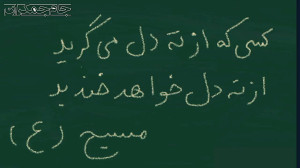 کسی که از ته دل می گرید
از ته دل خواهد خندید
مسیح (ع)